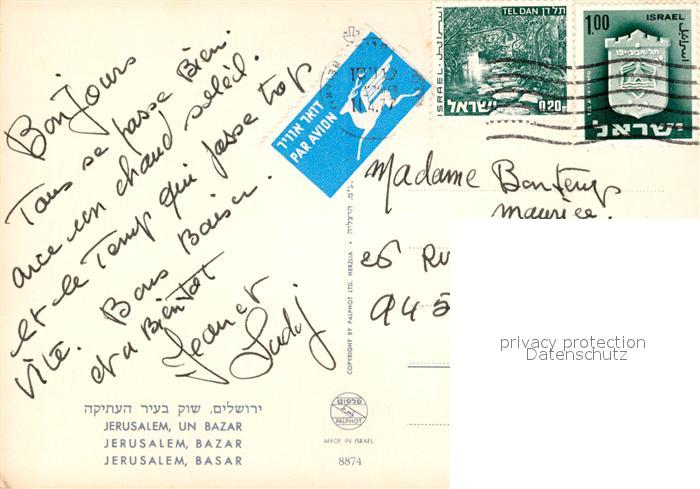 Bonjours
Tous se passe Bien.
avec un chaud soleil.
et le Temps qui passe trop
vite. Bons Baisers.
et a Bientot
Jean et
ירושלים, שוק בעיר העתיקה
JERUSALEM, UN BAZAR
JERUSALEM, BAZAR
JERUSALEM, BASAR
דואר אוויר
PAR AVION
COPYRIGHT BY PALPHOT LTD. HERZLIA
הרצליה
פלפוט
PALPHOT
MADE IN ISRAEL
8874
TEL DAN תל דן
ISRAEL
اسرائيل
ישראל
0.20
1.00
ISRAEL
اسرائيل
תל-אביב-יפו
ישראל
Madame Bontemps
Maurice.
26 RU
945
privacy protection
Datenschutz